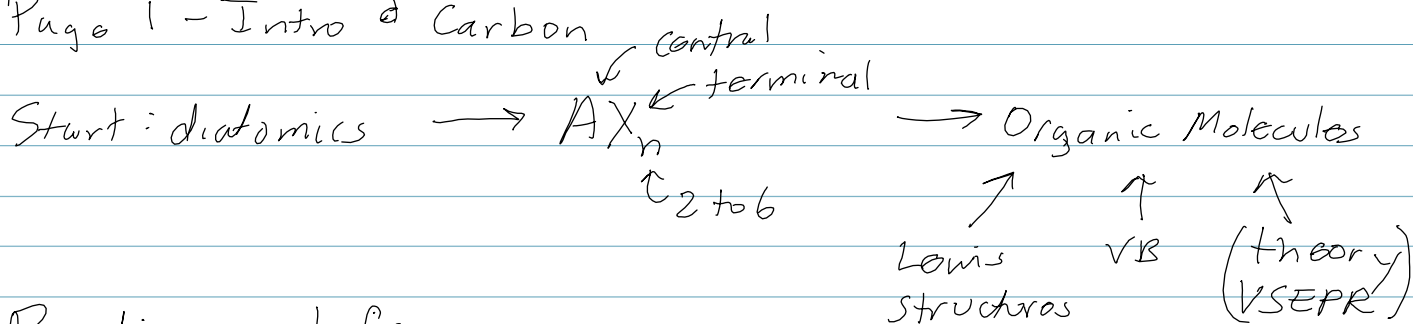 Page 1 - Intro & Carbon
central
terminal
Start: diatomics → AXn → Organic Molecules
2 to 6
Lewis VB (theory
structures VSEPR)